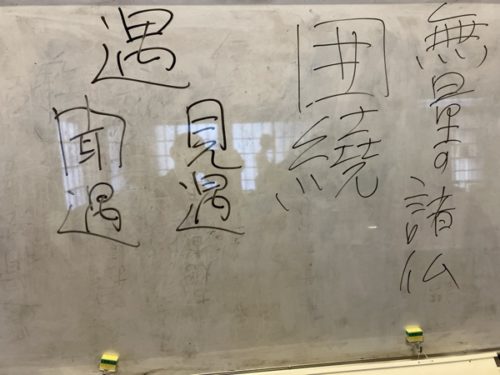 無量の諸仏
囲繞
遇
見遇
聞遇